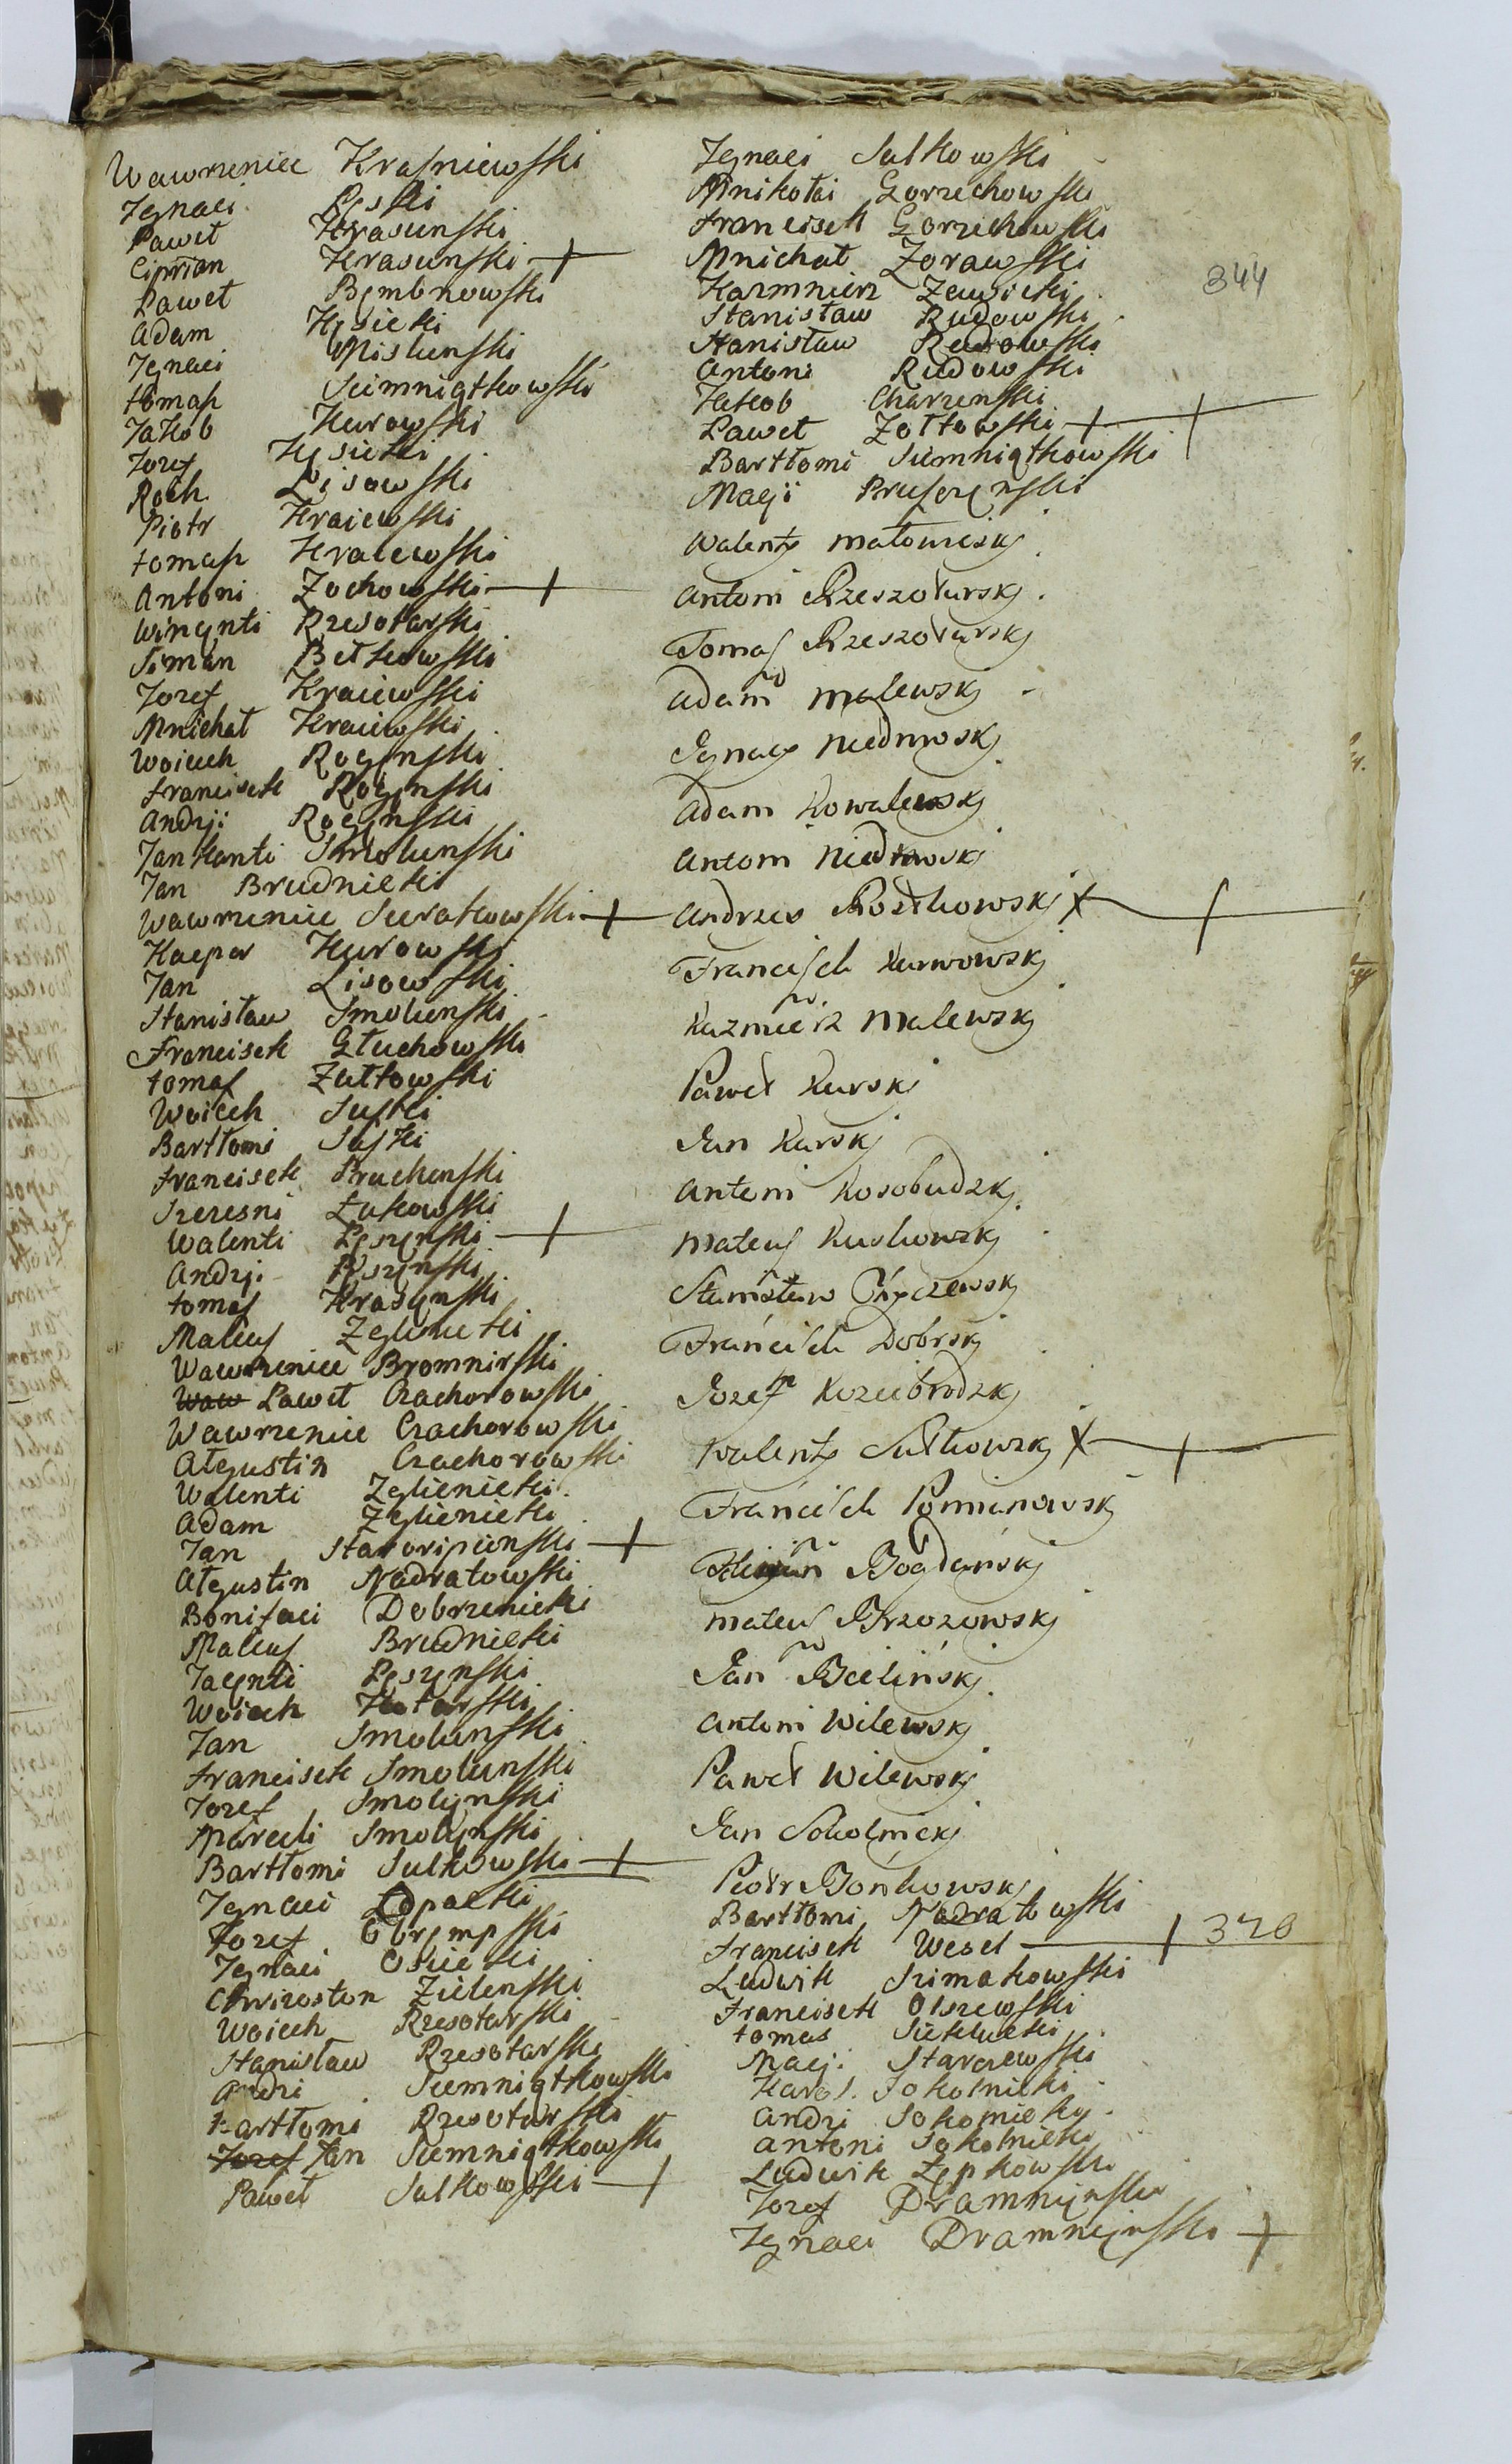 Wawrzeniec Krasniewski
Jgnaci Pęski
Paweł Krasunski
Ciprian Krasunski +
Paweł Bymbnowski
Adam Kęsicki
Jgnaci Mislunski
tomasz Siemniątkowski
Jakob Kurowski
Jozef Kęsicki
Roch Lisowski
Piotr Kraiewski
tomasz Kraiewski
Antoni Zochowski +
Wincynti Rzesotarski
Siman Betkowski
Jozef Kraiewski
Mnichał Kraiewski
Woiciech Rogynski
francisek Rogynski
Andrji Rogynski
Jan Kanti Smolunski
Jan Brudnicki
Wawrzeniec Surakowski +
Kacper Kurowski
Jan Lisowski
Stanisław Smolenski
Francisek Głuchowski
tomas Zułtowski
Woiceh Suski
Bartłomi Suski
francisek Pruchenski
Szczesni Łukowski
Walenti Pęszynski +
Andrzi Pęszynski
tomas Krasynski
Mateus Zglenicki
Wawrzeniec Bromnirski
Waw Paweł Czachorowski
Wawrzeniec Czachorowski
Algustin Czachorowski
Walenti Zglienicki
Adam Zglienicki
Jan Staroripienski +
Algustin Nadratowski
Bonifaci Dobrzenicki
Mateus Brudnicki
Jacynti Pęszynski
Woiceh Kotarski
Jan Smolunski
francisek Smolunski
Jozef Smolynski
Marceli Smolynski
Bartłomi Sulkowski +
Jgnaci Łopacki
Jozef Obrympski
Jgnaci Osiecki
Chrizoston Zielenski
Woiceh Rzesotarski
Stanisław Rzesotarski
Andri Siemniątkowski
Bartłomi Rzesotarski
Jozef Jan Siemniątkowski
Paweł Sulkowski +
Jgnaci Sulkowski
Mnikołai Gorzechowski
francisek Gorzechowski
Mnichał Zorawski
Kazmnierz Zawicki
Stanisław Rudowski
Stanisław Rudowski
Antoni Rudowski
Jakob Charzenski
Paweł Zołtowski +
Bartłomi Siemniątkowski
Macji Pruszynski
Walenty Małowieski
Antoni Rzeszotarskj
Tomas Rzeszotarskj
Adam Malewskj
Jgnacy Niedrowskj
Adam Kowalewskj
Antoni Niedrowskj
Andrzey Rostkowskj +
Francisek Kurwowskj
Kazmierz Malewskj
Paweł Kurskj
Jan Kurskj
Antoni Kosobudzkj
Mateus Kuskowskj
Stanisław Życzewskj
Francisek Dobrskj
Jozef Koziebrodzkj
Walenty Sułkowskj +
Francisek Pomianowskj
Bogdańskj
Mateus Brzozowskj
Jan Bielińskj
Antoni Wilewskj
Paweł Wilewskj
Jan Sokolnickj
Piotr Bońkowskj
Bartłomi Nadratowski
Francisek Wesel + 320
Ludwik Szimakowski
Franciseck Olszewski
tomas Sieklucki
Macji Starczewski
Karol Sokolnicki
Andri Sokolnicki
Antoni Sokolnicki
Ludwik Łępkowski
Jozef Dramnynski
Jgnaci Dramnynski +
344